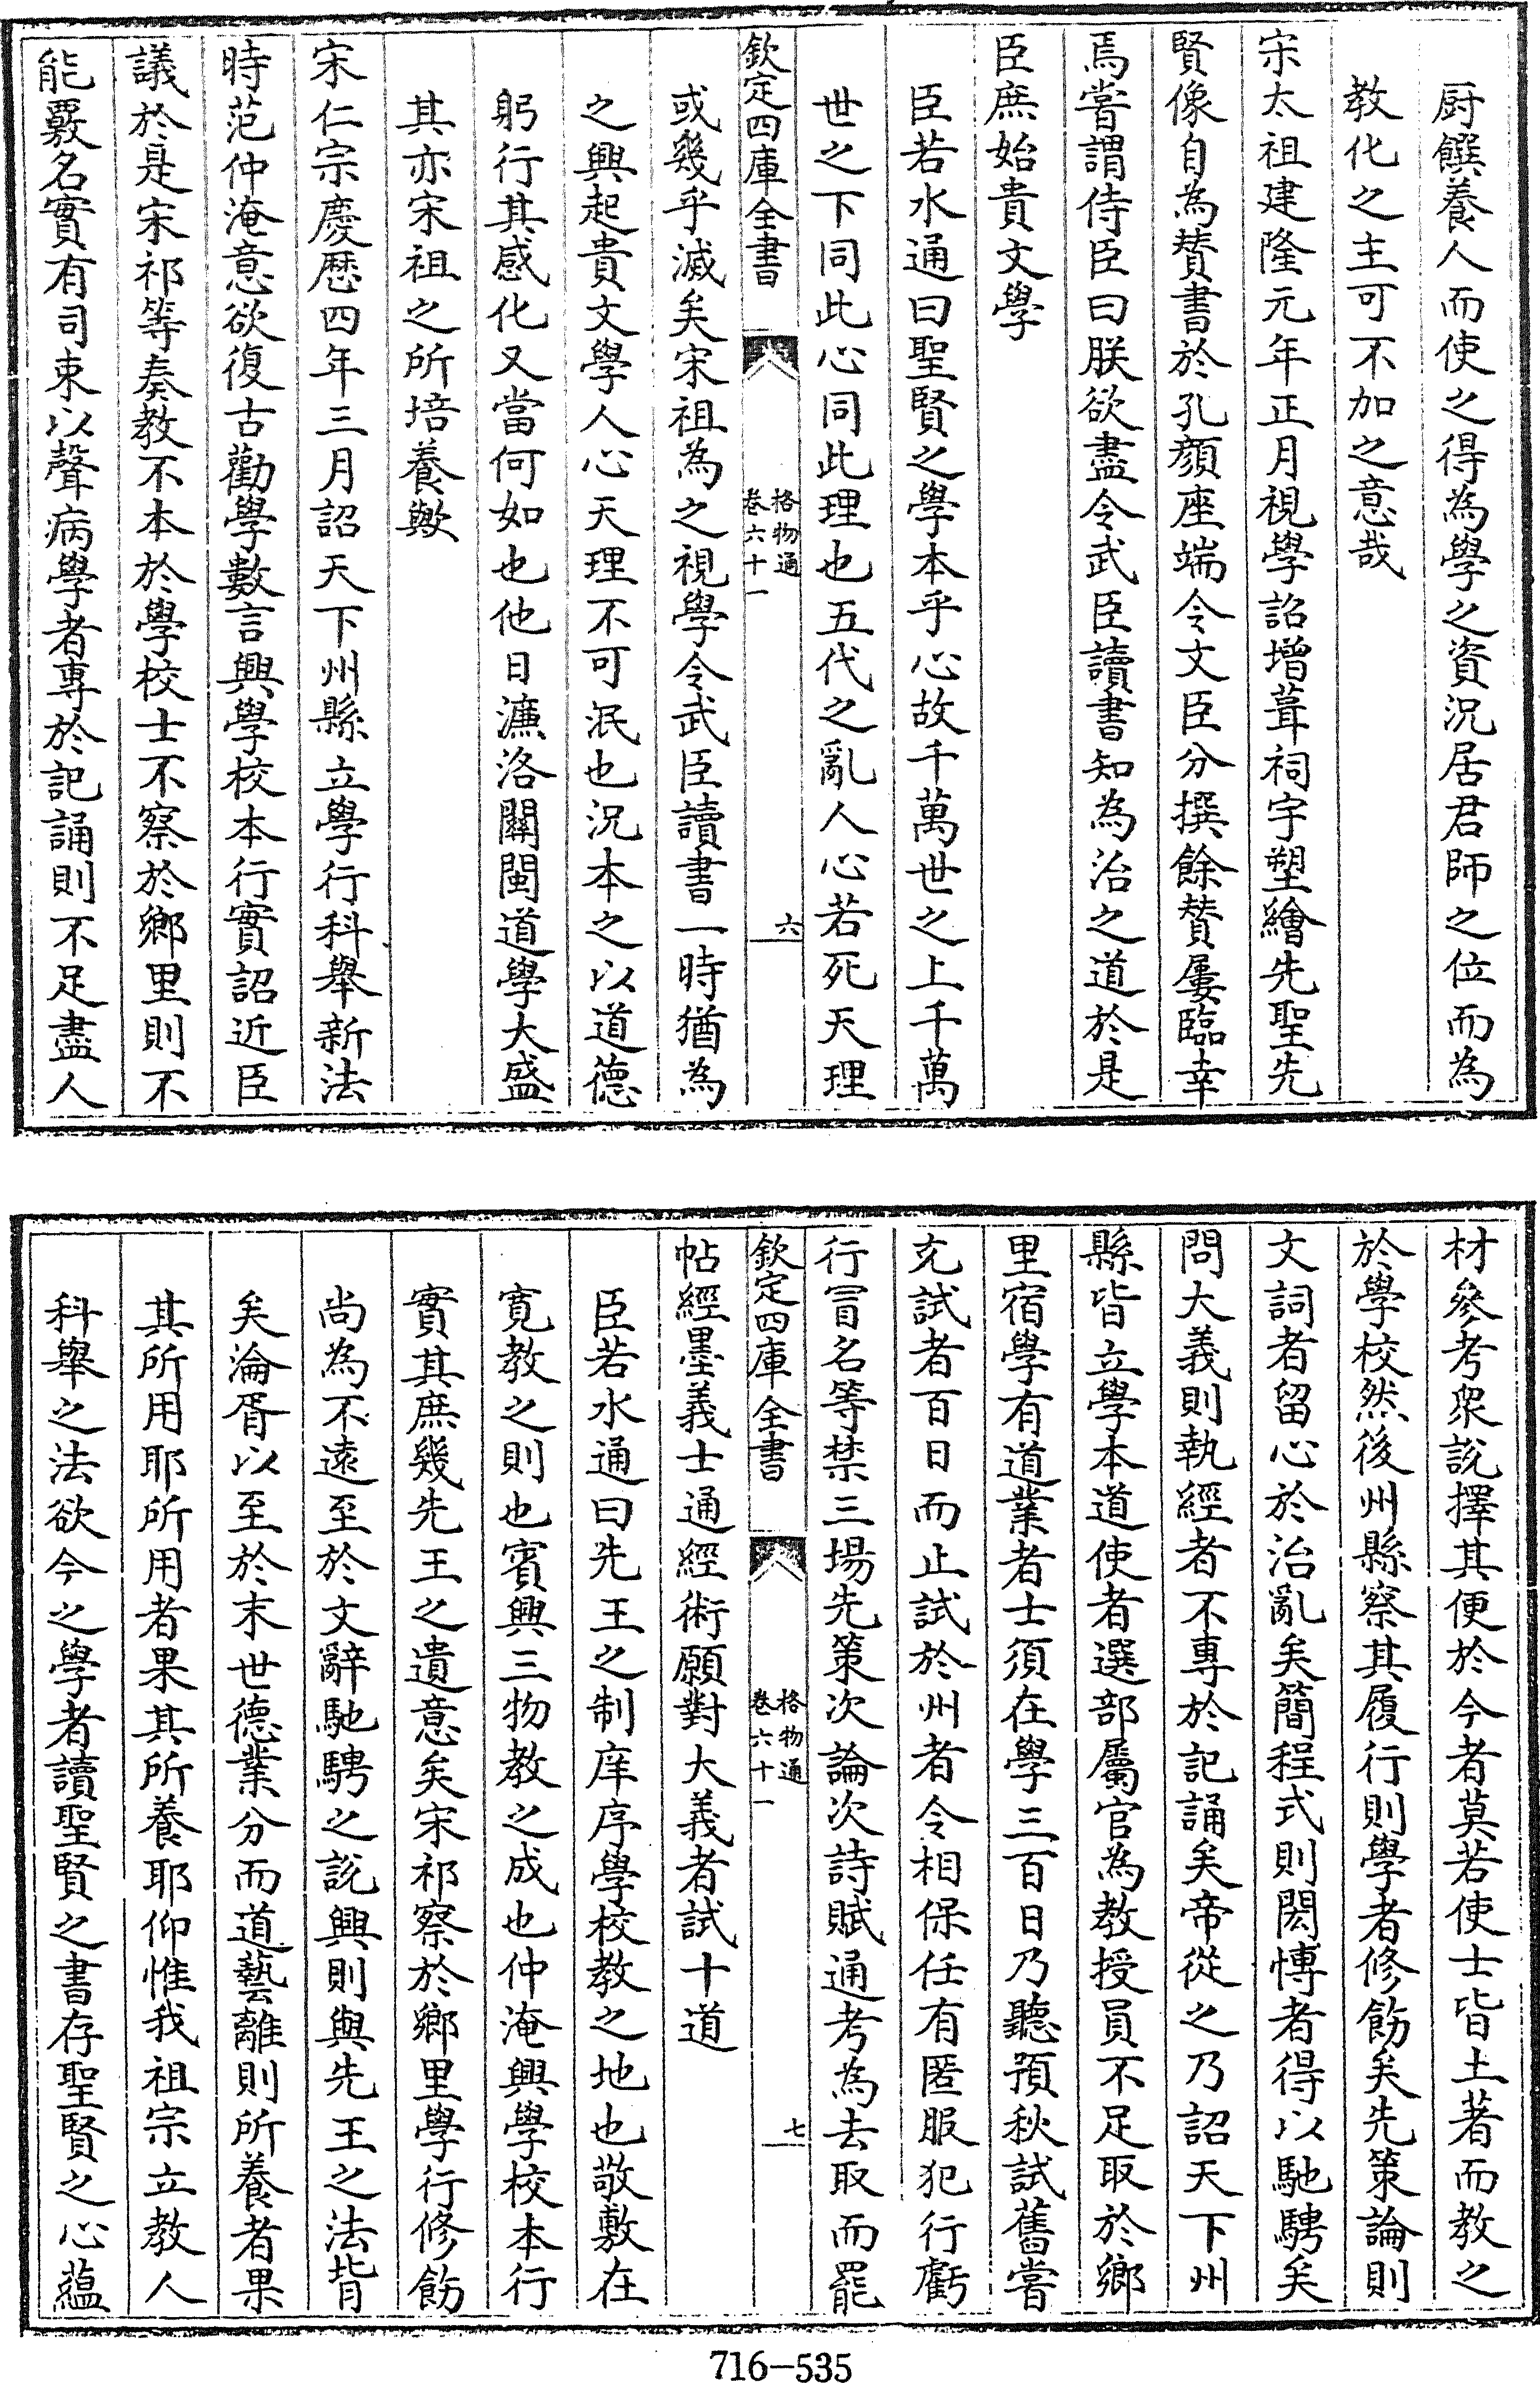 厨饌養人而使之得為學之資況居君師之位而為
教化之主可不加之意哉
宋太祖建隆元年正月視學詔增葺祠宇塑繪先聖先
賢像自為賛書於孔顔座端令文臣分撰餘賛屢臨幸
焉嘗謂侍臣曰朕欲盡令武臣讀書知為治之道於是
臣庶始貴文學
臣若水通曰聖賢之學本乎心故千萬世之上千萬
世之下同此心同此理也五代之亂人心若死天理
欽定四庫全書
格物通
卷六十一
六
或幾乎滅矣宋祖為之視學令武臣讀書一時猶為
之興起貴文學人心天理不可泯也況本之以道德
躬行其感化又當何如也他日濂洛關閩道學大盛
其亦宋祖之所培養歟
宋仁宗慶厯四年三月詔天下州縣立學行科舉新法
時范仲淹意欲復古勸學數言興學校本行實詔近臣
議於是宋祁等奏教不本於學校士不察於鄉里則不
能覈名實有司束以聲病學者專於記誦則不足盡人
材參考衆說擇其便於今者莫若使士皆土著而教之
於學校然後州縣察其履行則學者修飭矣先策論則
文詞者留心於治亂矣簡程式則閎愽者得以馳騁矣
問大義則執經者不專於記誦矣帝從之乃詔天下州
縣皆立學本道使者選部屬官為教授員不足取於鄉
里宿學有道業者士須在學三百日乃聽預秋試舊嘗
充試者百日而止試於州者令相保任有匿服犯行虧
行冒名等禁三場先策次論次詩賦通考為去取而罷
欽定四庫全書
格物通
卷六十一
七
帖經墨義士通經術願對大義者試十道
臣若水通曰先王之制庠序學校教之地也敬敷在
寛教之則也賓興三物教之成也仲淹興學校本行
實其庶幾先王之遺意矣宋祁察於鄉里學行修飭
尚為不遠至於文辭馳騁之說興則與先王之法背
矣淪胥以至於末世德業分而道藝離則所養者果
其所用耶所用者果其所養耶仰惟我祖宗立教人
科舉之法欲今之學者讀聖賢之書存聖賢之心蘊
716-535